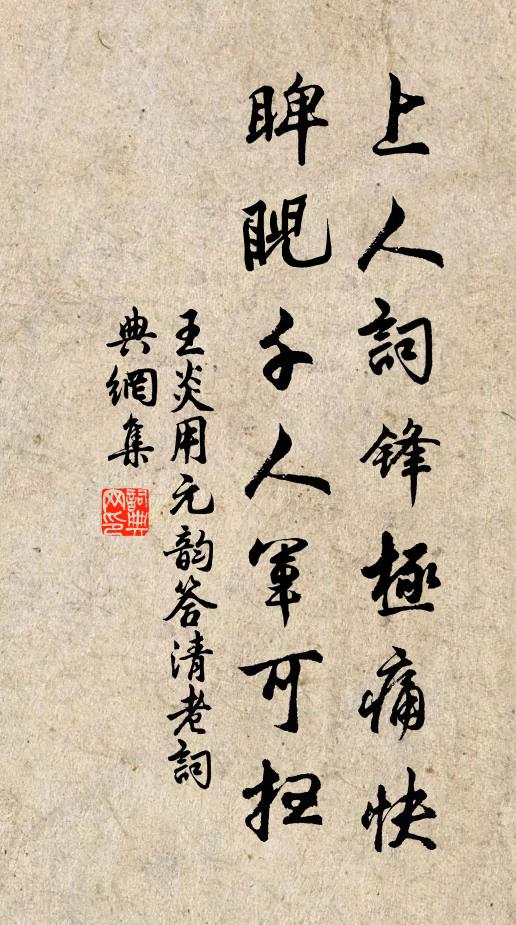 上人詞鋒極痛快
睥睨千人軍可扫
王炎用元韵答清老詞
典網集
詞典網印